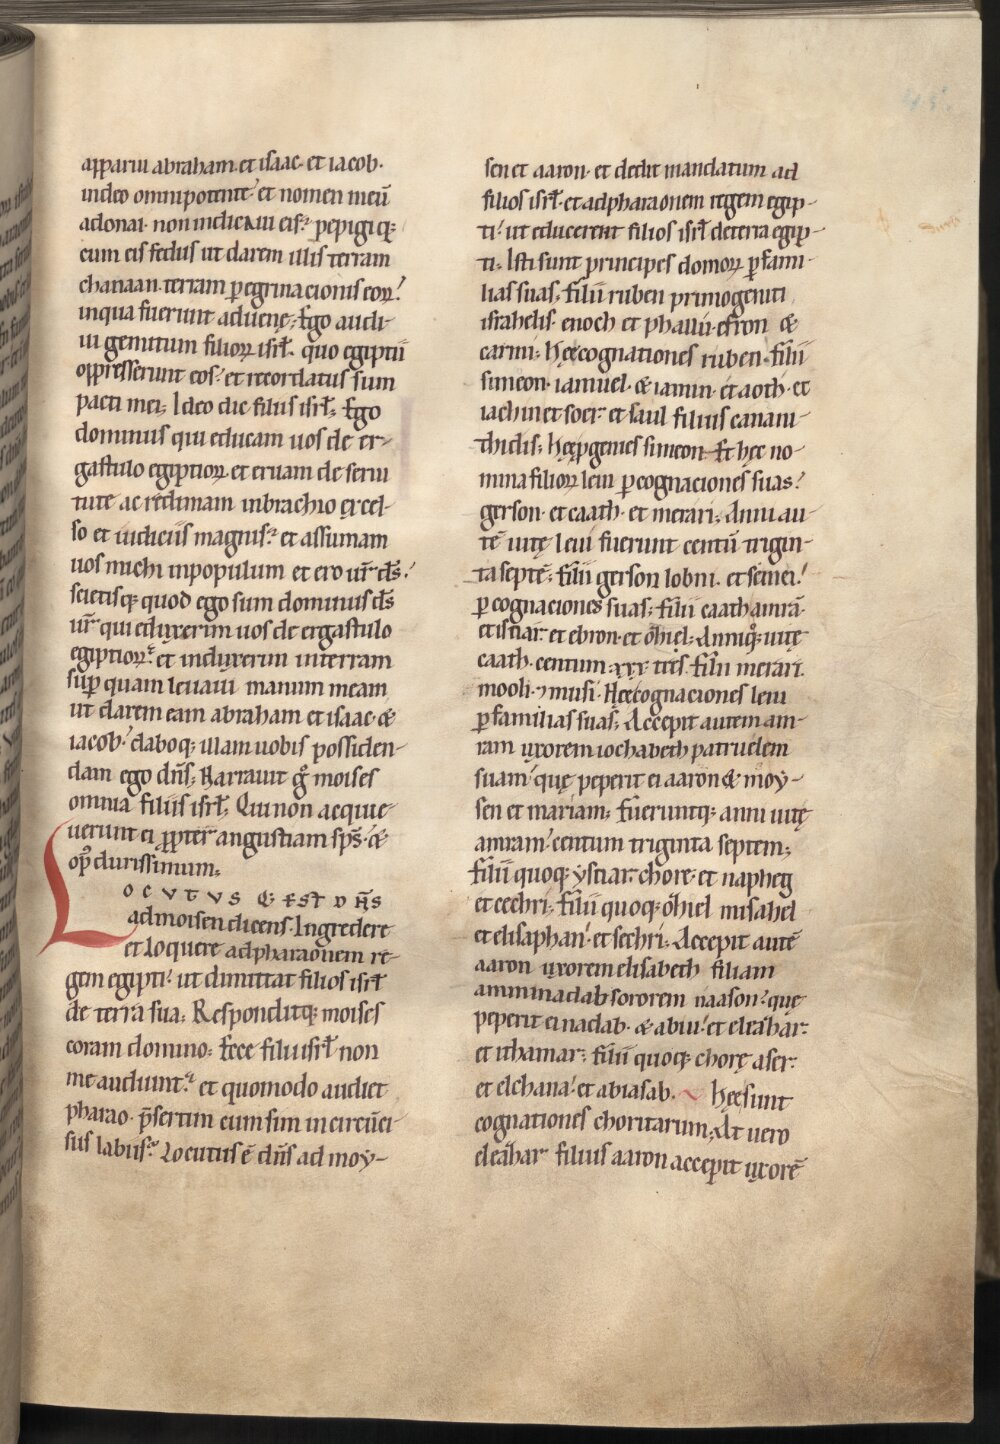 apparui abraham et isaac· et iacob·
in deo omnipotente· et nomen meū
adonai· non indicaui eis· pepigiq;
cum eis fedus ut darem illis terram
chanaan· terram p̱egrinacionis eoꝝ·
in qua fuerunt aduenę; Ego audi-
ui gemitum filioꝝ isrł· quo egiptii
oppresserunt eos· et recordatus sum
pacti mei; Ideo dic filiis isrł; Ego
dominus qui educam uos de er-
gastulo egiptioꝝ· et eruam de serui
tute· ac redimam in brachio excel-
so et iudiciis magnis· et assumam
uos michi in populum et ero ur̄ ds̄·
scietisq; quod ego sum dominus ds̄
ur̄ qui eduxerim uos de ergastulo
egiptioꝝ· et induxerim in terram
sup̱ quam leuaui manum meam
ut darem eam abraham et isaac· &
iacob· daboq; illam uobis possiden-
dam ego dn̄s; Narrauit gͦ moises
omnia filiis isrł; Qui non acquie-
uerunt ei ꝓpter angustiam sp̄s· &
op̱ durissimum;
LOCVTVS & EST DN̄S
ad moisen dicens· Ingredere
et loquere ad pharaonem re-
gem egipti· ut dimittat filios isrł
de terra sua; Responditq; moises
coram domino; Ecce filii isrł non
me audiunt· et quomodo audiet
pharao· p̄sertim cum sim incircūci-
sus labiis· Locutus ē dn̄s ad moy-
sen et aaron· et dedit mandatum ad
filios isrł· et ad pharaonem regem egip-
ti· ut educerent filios isrł de terra egip-
ti· Isti sunt principes domoꝝ p̱ fami-
lias suas; filii ruben primogeniti
israhelis· enoch et phallu· esron &
carmi; Hęc cognationes ruben· filii
simeon· iamuel· & iamin· et aoth· et
iachin et soer· et saul filius canani-
thidis; hęc ꝓgenies simeon· Et hęc no-
mina filioꝝ leui p̱ cognaciones suas·
gerson· et caath· et merari; Anni au-
tē uitę leui fuerunt centū trigin-
ta septē; filii gerson lobni· et semei·
p̱ cognaciones suas; filii caath amrā·
et isuar· et ebron· et ōhiel; Anniq;ͦ uitę
caath· centum xxx· tres· filii merari·
mooli· ⁊ musi· Hęc cognaciones leui
p̱ familias suas; Accepit autem am-
ram uxorem iochabeth patruelem
suam· quę peperit ei aaron & moy-
sen et mariam; fueruntq; anni uitę
amram· centum triginta septem;
filii quoq; ysuar· chore· et napheg
et cechri; filii quoq; ōhiel misahel
et elisaphan· et sechri; Accepit autē
aaron uxorem elisabeth filiam
amminadab sororem naason· quę
peperit ei nadab· & abiu· et eleāhar·
et ithamar; filii quoq; chorę aser·
et elchana· et abiasab· Hęc sunt
cognationes choritarum; At uero
eleāhar filius aaron accepit uxorē